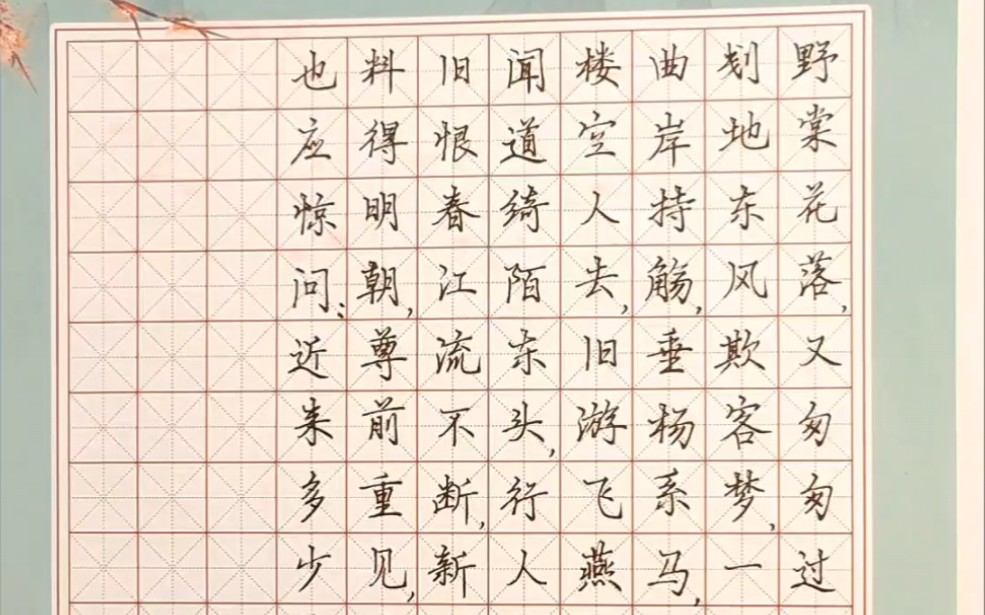 野棠花落，又匆匆过
刬地东风欺客梦，一
曲岸持觞，垂杨系马，
楼空人去，旧游飞燕
闻道绮陌东头，行人
旧恨春江流不断，新
料得明朝，尊前重见，
也应惊问：近来多少